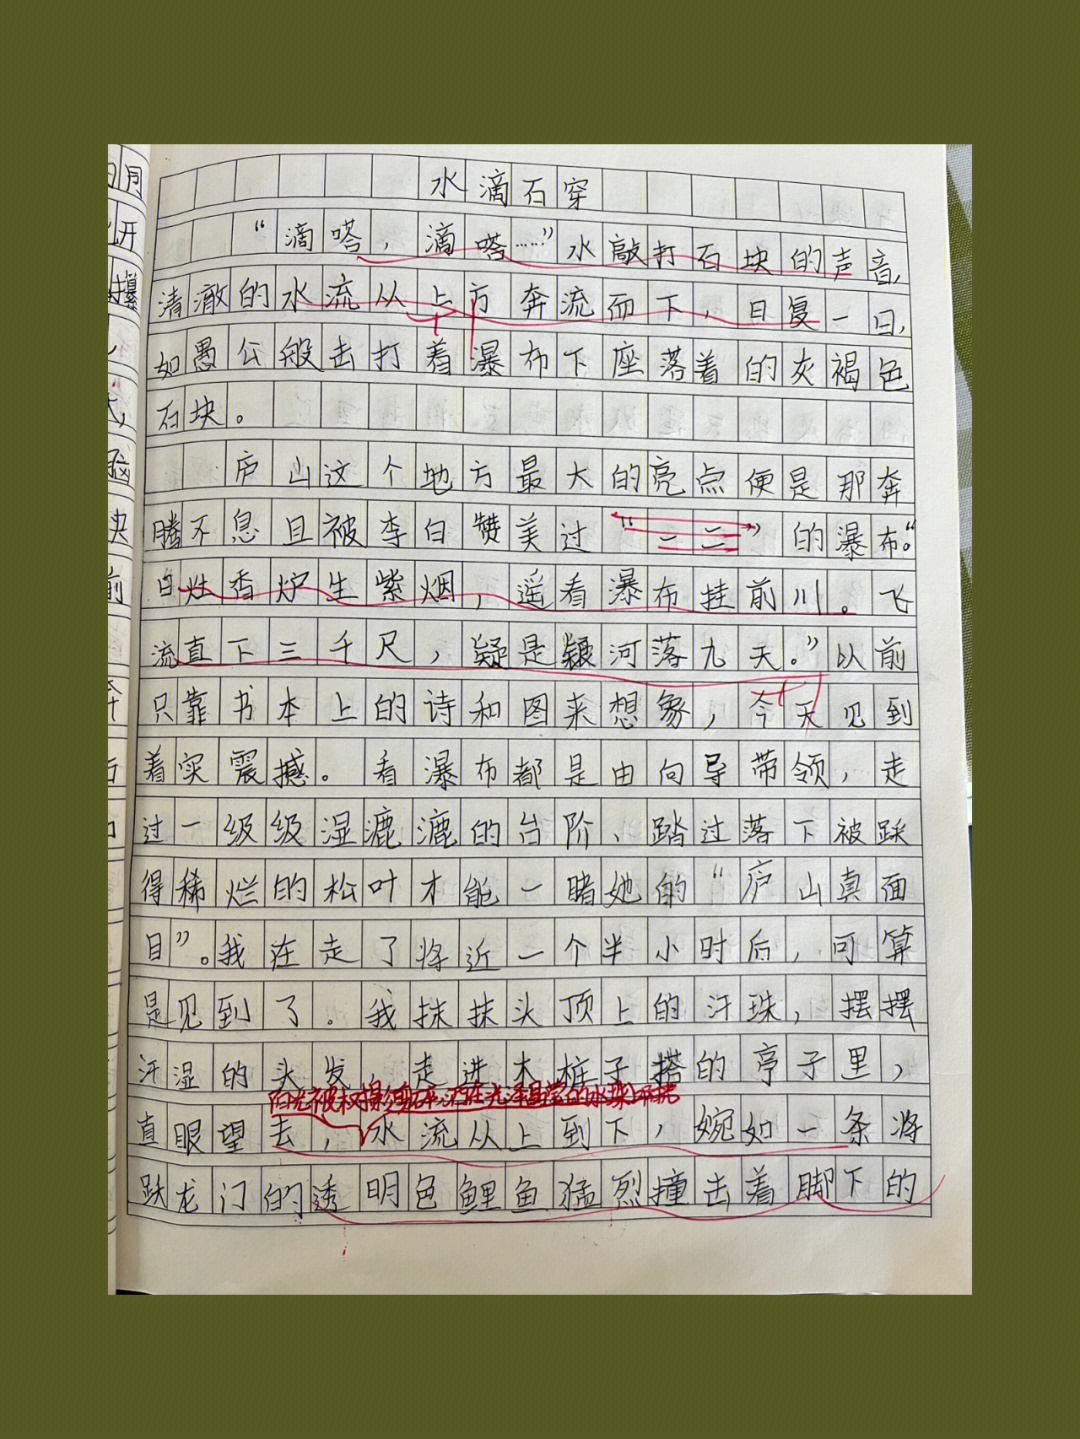 水滴石穿
“滴嗒，滴嗒……”水敲打石块的声音，
清澈的水流从上方奔流而下，日复一日，
如愚公般击打着瀑布下座落着的灰褐色
石块。
庐山这个地方最大的亮点便是那奔
腾不息且被李白赞美过“一二”的瀑布。“
日灶香炉生紫烟，遥看瀑布挂前川。飞
流直下三千尺，疑是银河落九天。”以前
只靠书本上的诗和图来想象，今天见到
着实震撼。看瀑布都是由向导带领，走
过一级级湿漉漉的台阶、踏过落下被踩
得稀烂的松叶才能一睹她的“庐山真面
目”。我在走了将近一个半小时后，可算
是见到了。我抹抹头顶上的汗珠，摆摆
汗湿的头发，走进木桩子搭的亭子里，
阳光被
直眼望去，水流从上到下，婉如一条将
跃龙门的透明色鲤鱼猛烈撞击着脚下的